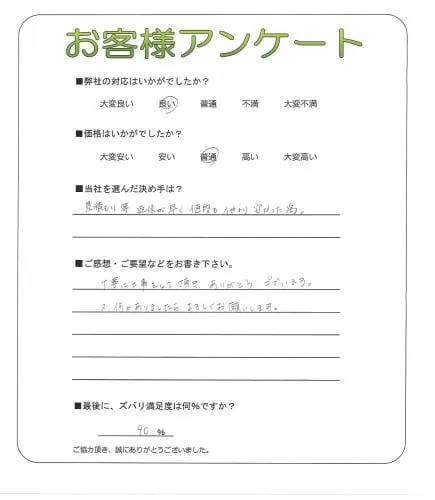 お客様アンケート
■弊社の対応はいかがでしたか?
大変良い 良い 普通 不満 大変不満
■価格はいかがでしたか?
大変安い 安い 普通 高い 大変高い
■当社を選んだ決め手は?
見積もり等 返信が早く 価格も 他より 安かった為。
■ご感想・ご要望などをお書き下さい。
丁寧に工事をして頂き、ありがとう ございます。
又、何かありましたら よろしくお願いします。
■最後に、ズバリ満足度は何%ですか?
90 %
ご協力頂き、誠にありがとうございました。